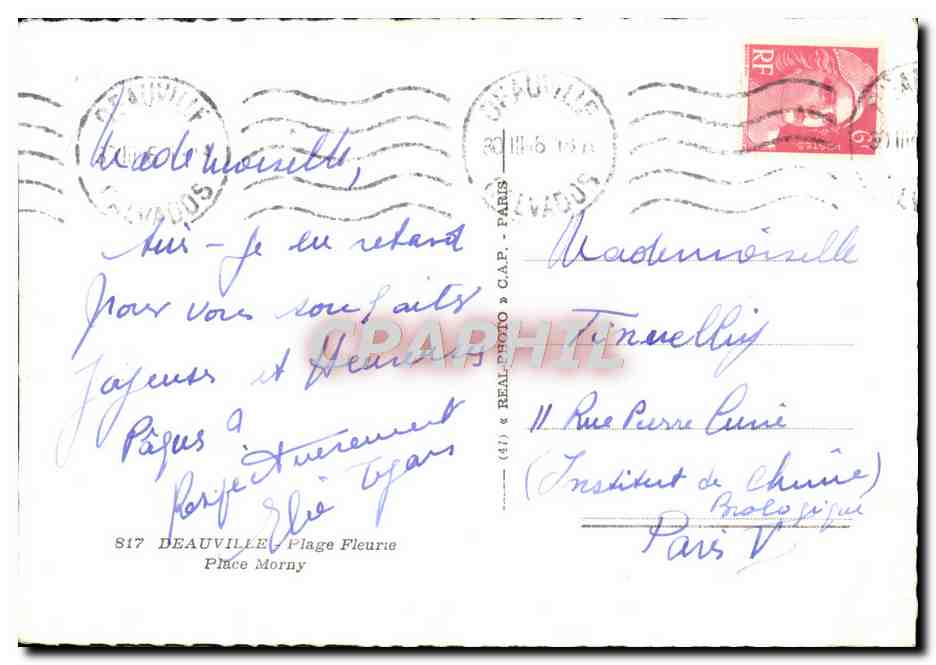 DEAUVILLE
CALVADOS
DEAUVILLE
CALVADOS
RF
6F
POSTES
Mademoiselle,
Suis-je en retard
pour vous souhaiter
Joyeuses et Heureuses
Pâques ?
Respectueusement
Elie
817 DEAUVILLE - Plage Fleurie
Place Morny
(47) « REAL-PHOTO » C.A.P. - PARIS
CPARHIL
Mademoiselle
11 Rue Pierre Curie
(Institut de Chimie)
Biologique
Paris V